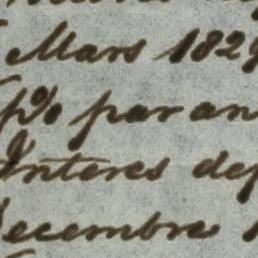 Mars 1829
p% par an
Interes dep
Decembre